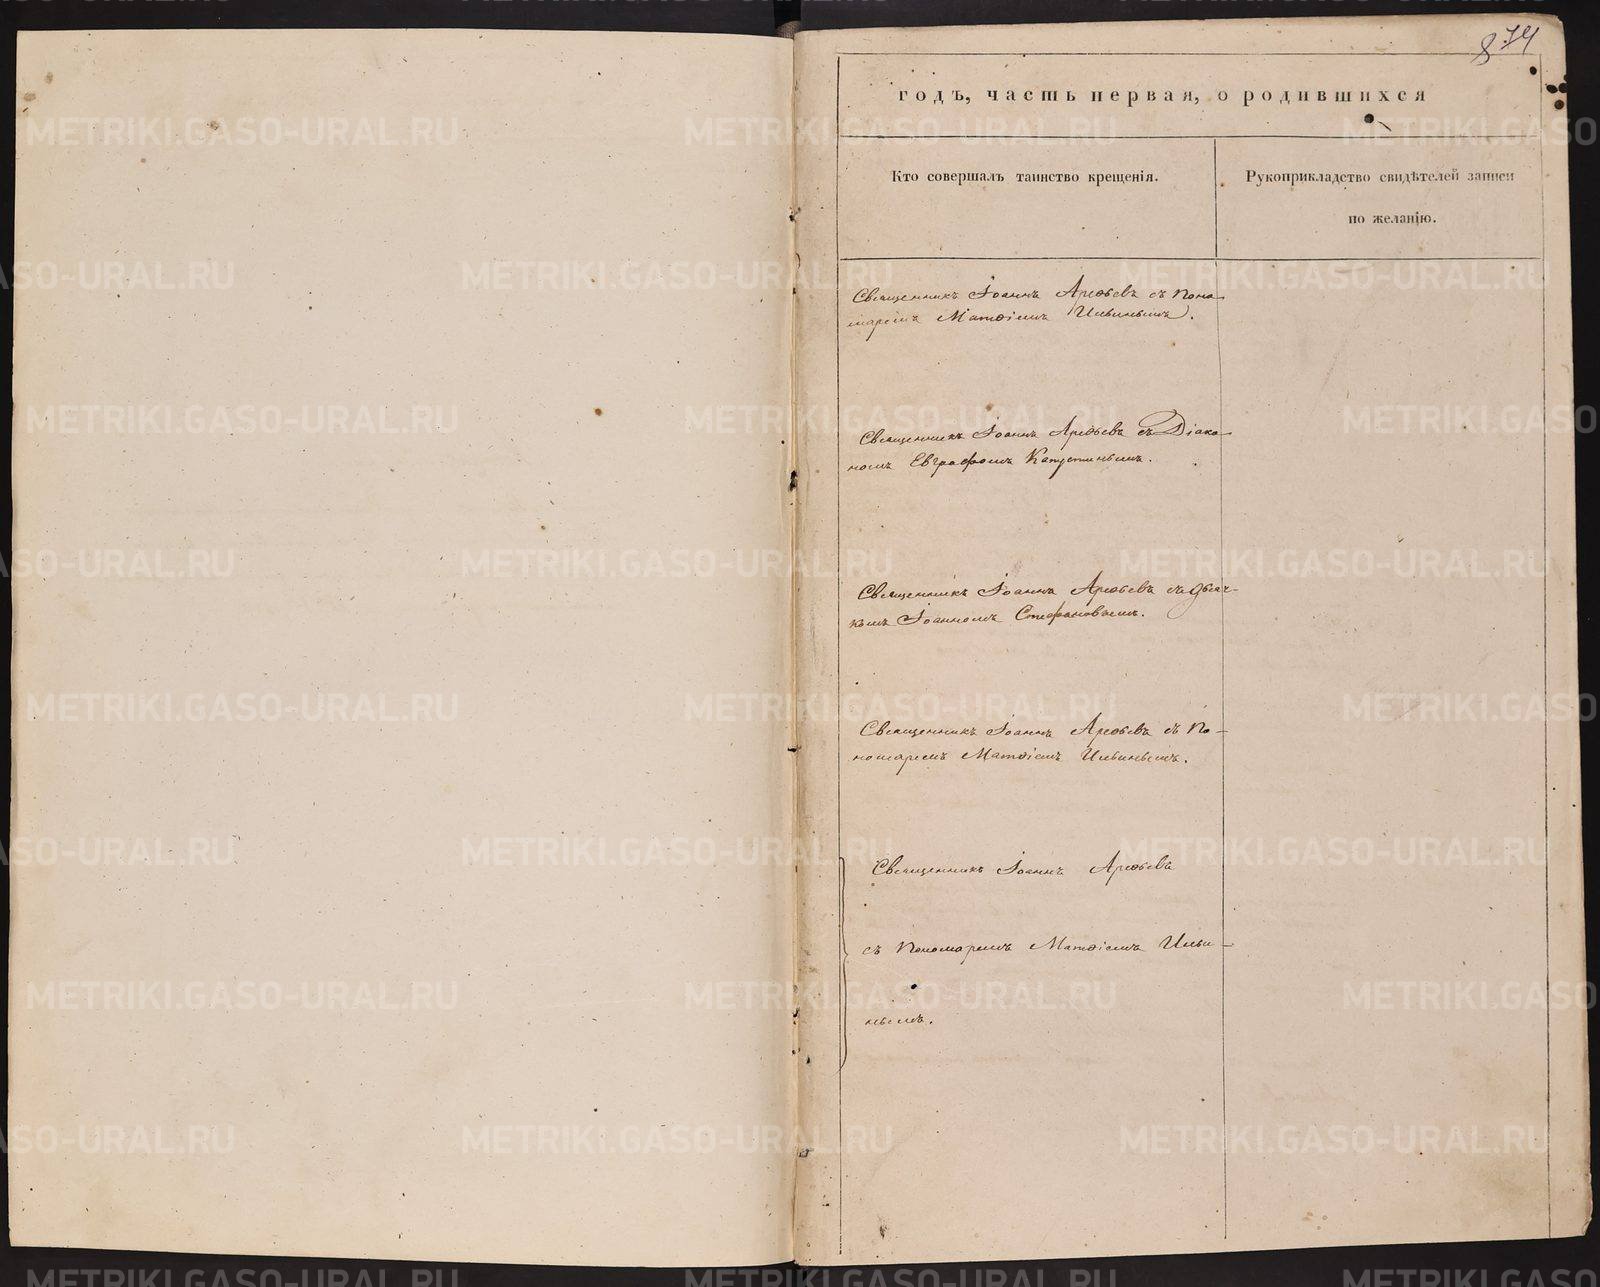 874
годъ, часть первая, о родившихся
Кто совершалъ таинство крещенія.
Рукоприкладство свидѣтелей записи
по желанію.
Священникъ Іоаннъ Арефьевъ съ Поно-
маремъ Матѳіемъ Ильинымъ.
Священникъ Іоаннъ Арефьевъ съ Діако-
номъ Евграфомъ Капустинымъ.
Священникъ Іоаннъ Арефьевъ съ Дьяч-
комъ Іоанномъ Стефановымъ.
Священникъ Іоаннъ Арефьевъ съ По-
номаремъ Матѳіемъ Ильинымъ.
Священникъ Іоаннъ Арефьевъ
съ Пономаремъ Матѳіемъ Ильи-
нымъ.
METRIKI.GASO-URAL.RU